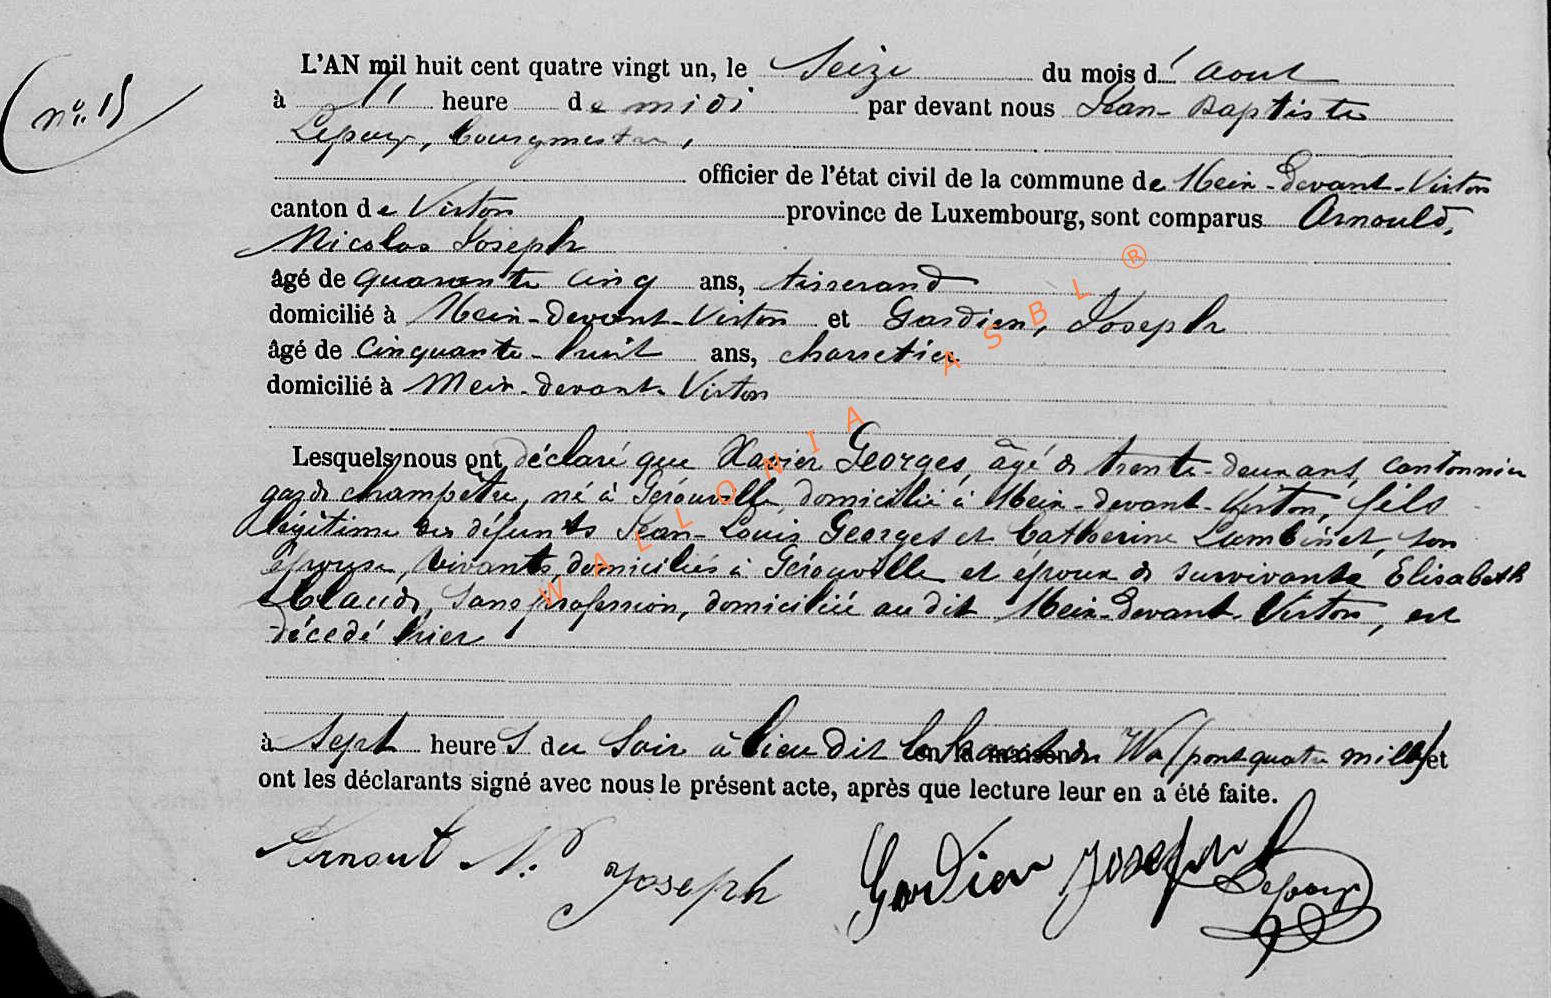 L'AN mil huit cent quatre vingt un, le Seize du mois d' aout
(n°. 15
à 11 heure de midi par devant nous Jean-Baptiste
Lepoux, bourgmestre,
officier de l'état civil de la commune de Meix-devant-Virton
canton de Virton province de Luxembourg, sont comparus Arnould,
Nicolas Joseph
âgé de quarante cinq ans, tisserand
domicilié à Meix-devant-Virton et Gardien, Joseph
âgé de cinquante-huit ans, charretier
domicilié à Meix-devant-Virton
Lesquels nous ont déclaré que Xavier Georges, âgé de trente-deux ans, cantonnier
garde champêtre, né à Gérouville, domicilié à Meix-devant-Virton, fils
légitime des défunts Jean-Louis Georges et Catherine Lambinet, son
épouse, vivants, domiciliés à Gérouville et époux de survivante Elisabeth
Claude, sans profession, domiciliée au dit Meix-devant-Virton, est
décédé hier
à sept heures du soir à lieu dit en la maison de (pont quatre mille) et
ont les déclarants signé avec nous le présent acte, après que lecture leur en a été faite.
Arnout N. Joseph Gardien Joseph Lepoux
WALLONIA ASBL ®